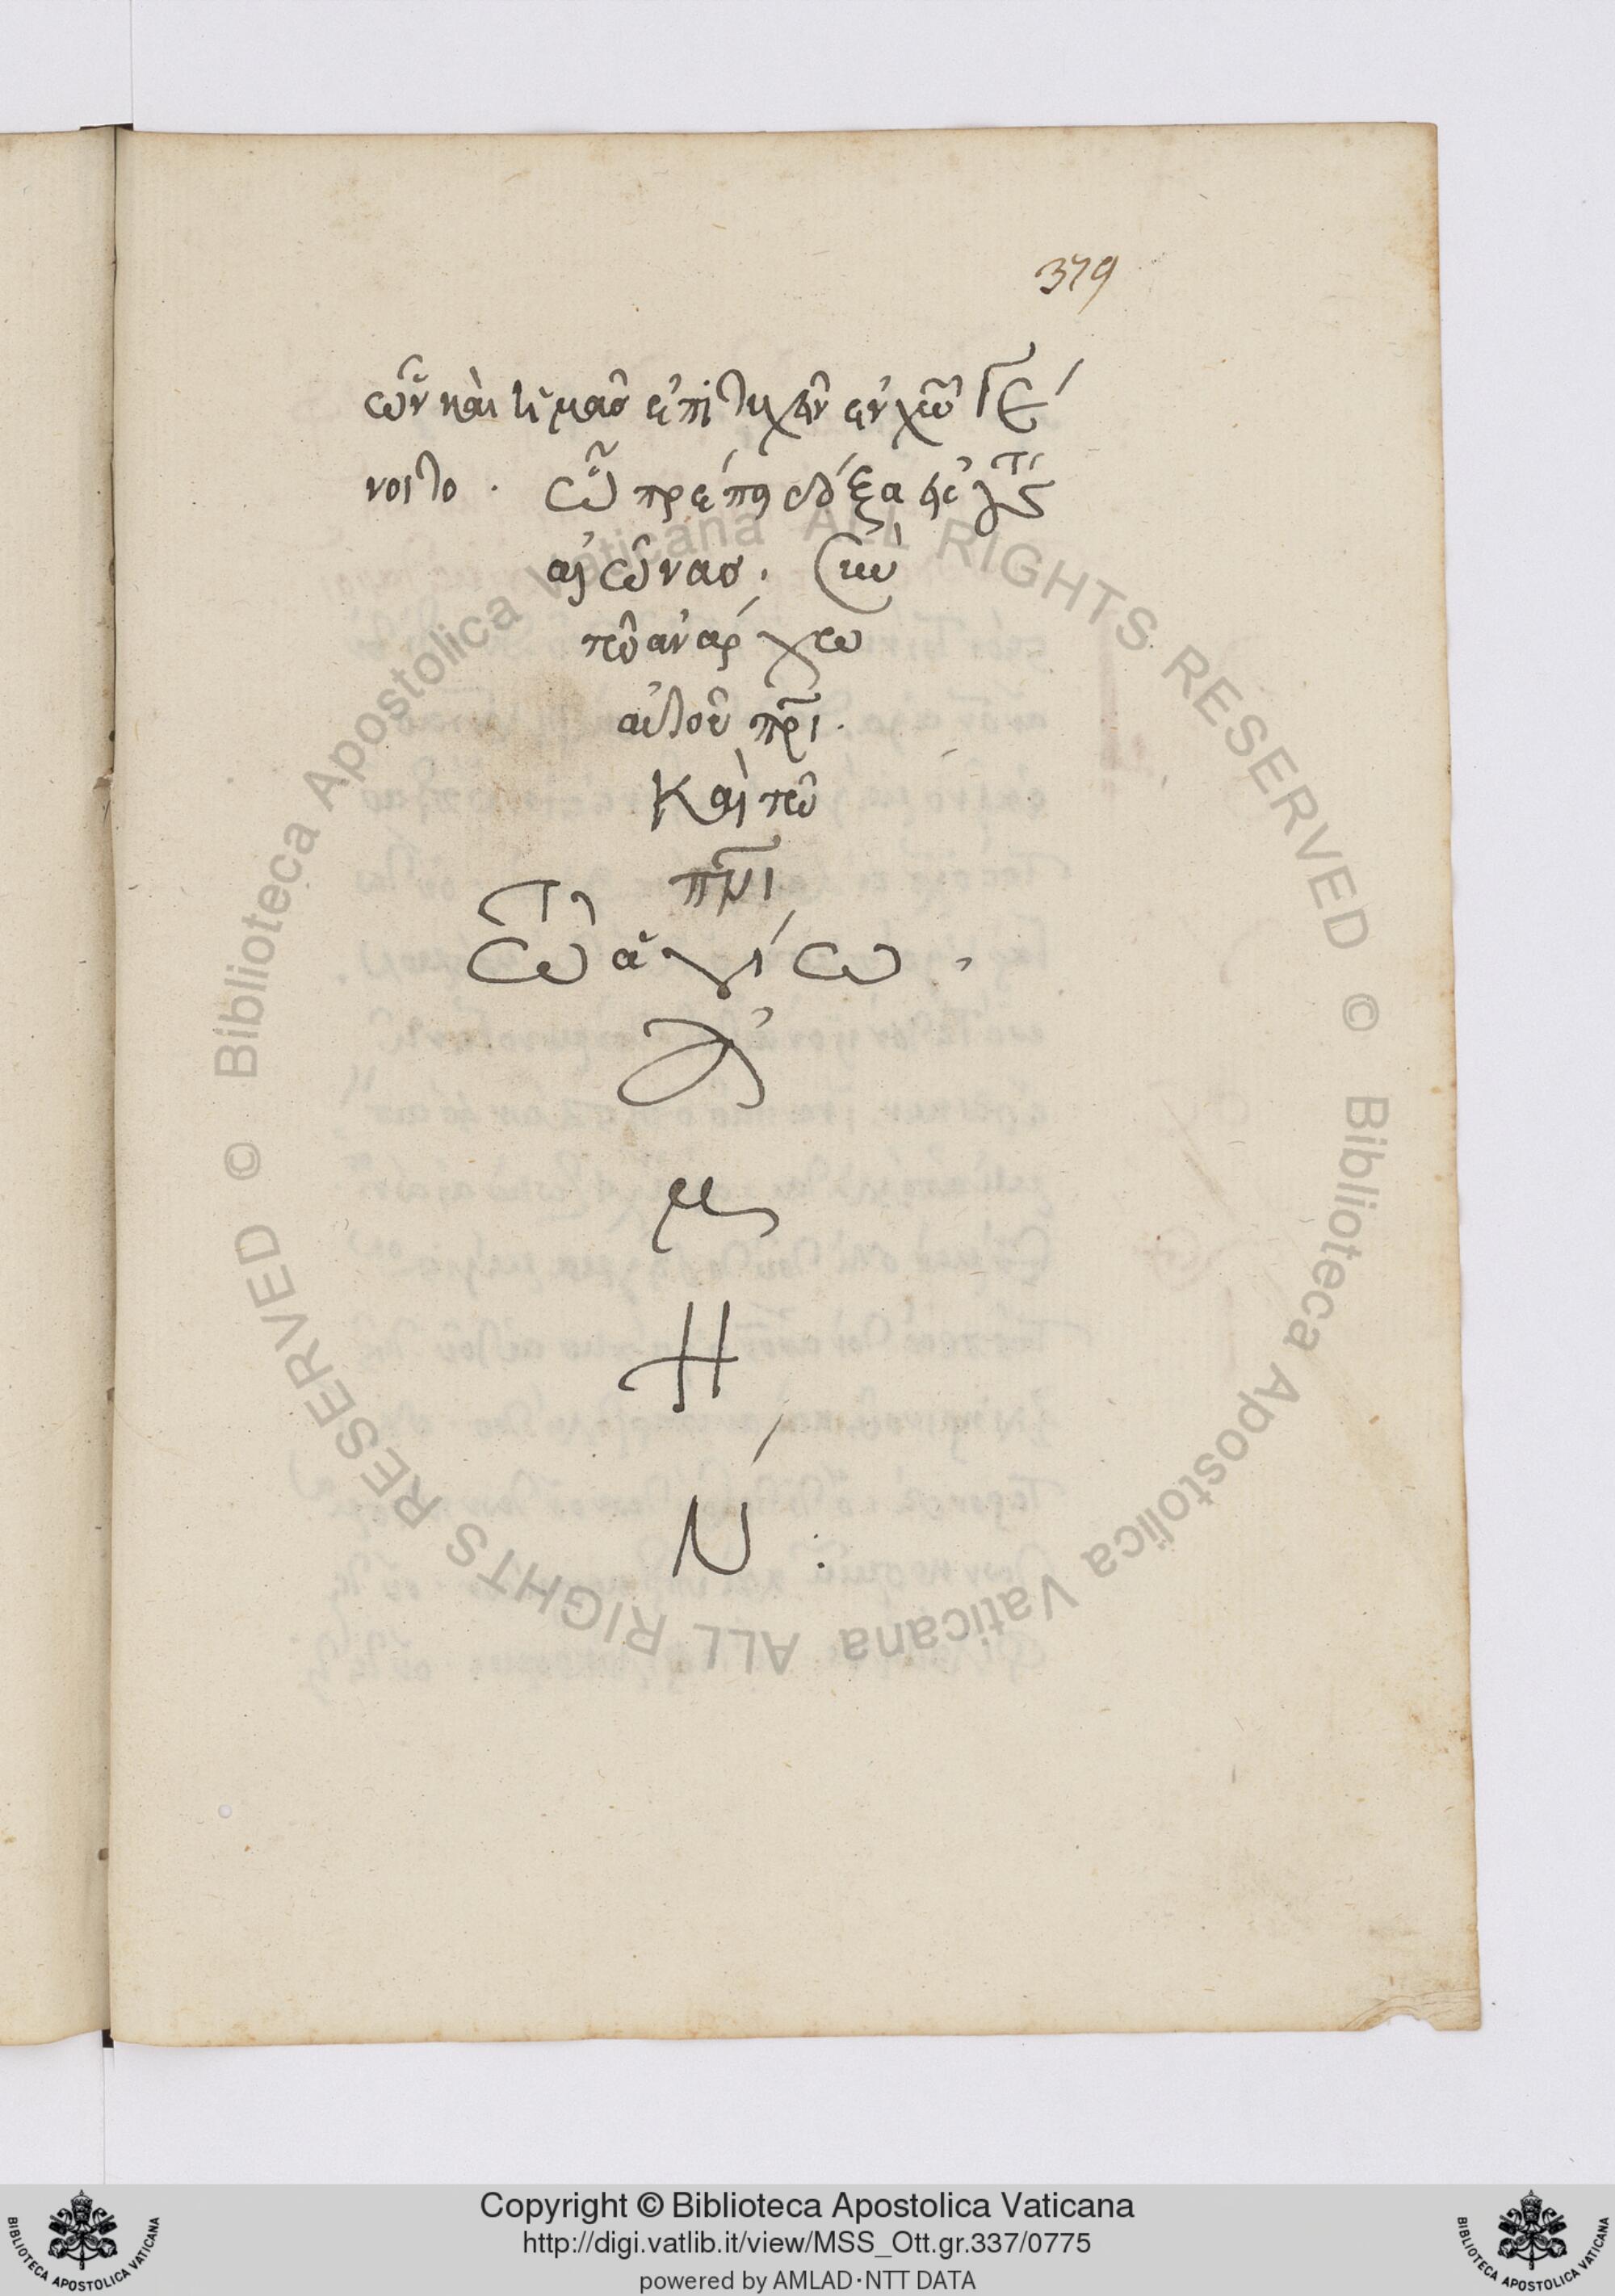 379
ὧν καὶ ἡμᾶς ἐπιτυχεῖν ἐν χῶ γέ
νοιτο. ὧ πρέπει δόξα εἰς τοὺς
αἰῶνας. σὺν
τῶ ἀνάρχω
αὐτοῦ πρι.
Καὶ τῶ
πνι
τῶ ἁγίω.
ἀ
μ
Η
Ν:
© Biblioteca Apostolica Vaticana ALL RIGHTS RESERVED
© Biblioteca Apostolica Vaticana ALL RIGHTS RESERVED
Copyright © Biblioteca Apostolica Vaticana
http://digi.vatlib.it/view/MSS_Ott.gr.337/0775
powered by AMLAD·NTT DATA
BIBLIOTECA APOSTOLICA VATICANA
BIBLIOTECA APOSTOLICA VATICANA